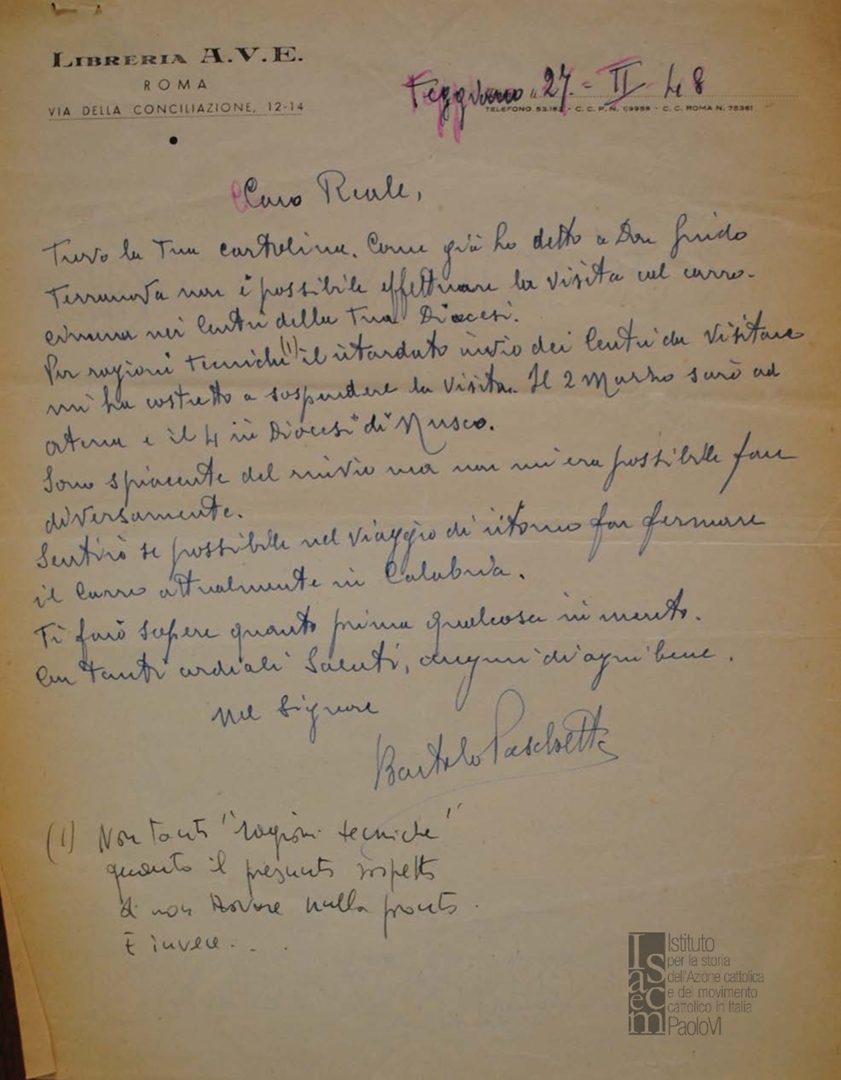 LIBRERIA A.V.E.
ROMA
VIA DELLA CONCILIAZIONE, 12-14
Teggiano 27 - II - 48
TELEFONO 53.182 - C. C. P. N. 1/9959 - C. C. ROMA N. 72361
Caro Reale,
Trovo la Tua cartolina. Come già ho detto a Don Guido
Terranova non è possibile effettuare la visita col carro-
cinema nei Centri della Tua Diocesi.
Per ragioni tecniche (1) il ritardato invio dei Centri da visitare
mi ha costretto a sospendere la visita. Il 2 Marzo sarò ad
Atena e il 4 in Diocesi di Nusco.
Sono spiacente del rinvio ma non mi era possibile fare
diversamente.
Sentirò se possibile nel viaggio di ritorno far fermare
il Carro attualmente in Calabria.
Ti farò sapere quanto prima qualcosa in merito.
Con tanti cordiali saluti, auguri di ogni bene.
Nel Signore
Bartolo Paschetta
(1) Non tanto "ragioni tecniche"
quanto il presunto sospetto
di non trovare nulla pronto.
E invece. . .
Isacem
Istituto
per la storia
dell'Azione cattolica
e del movimento
cattolico in Italia
PaoloVI